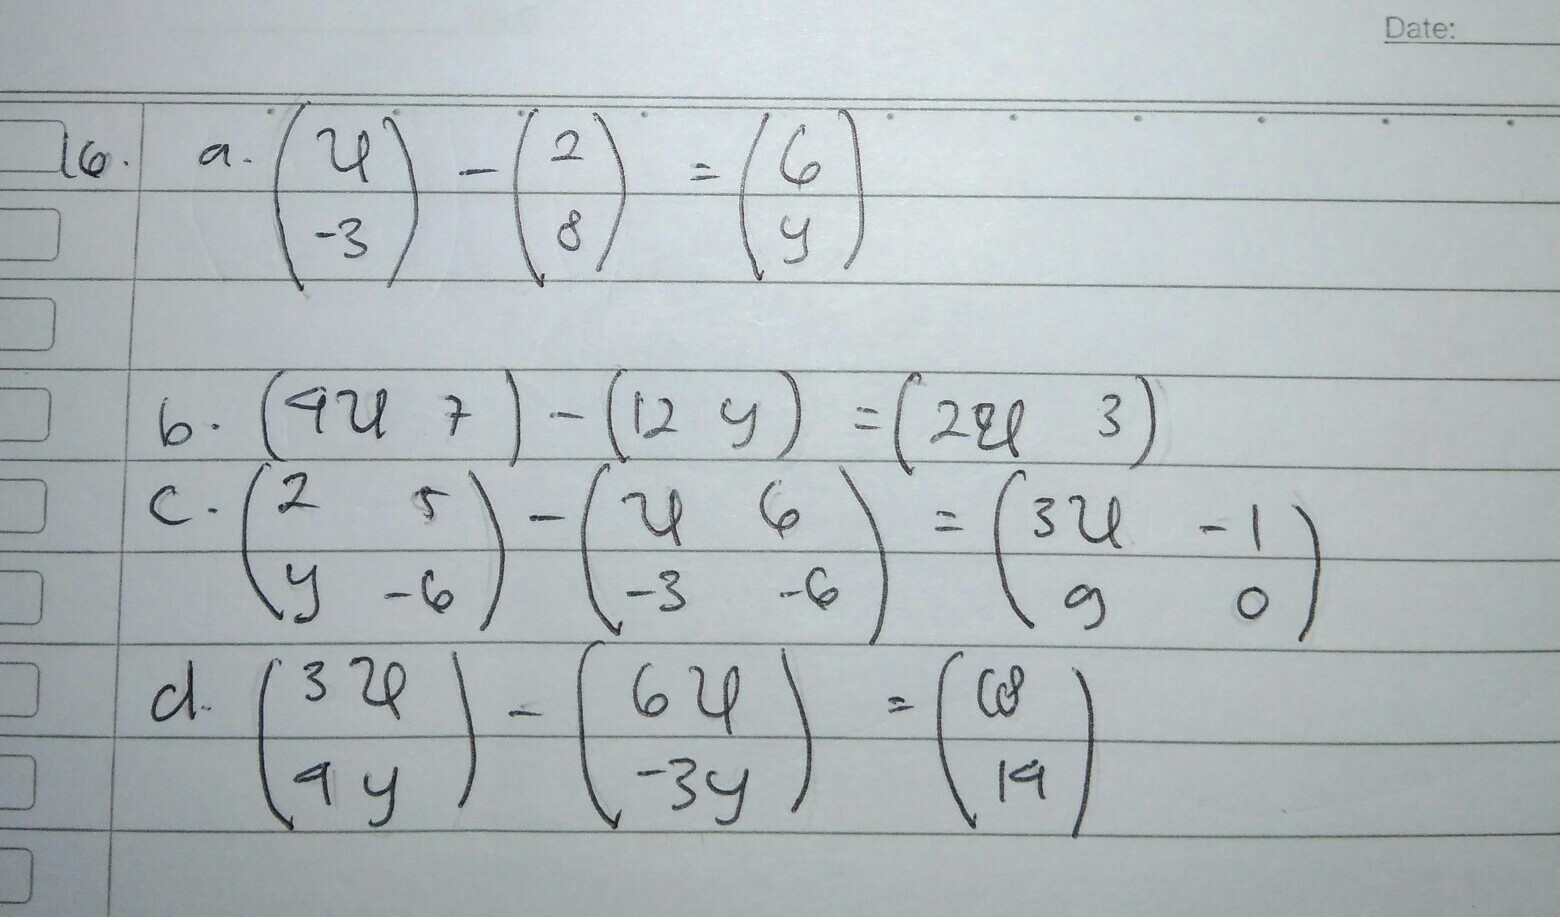 Date:
16. a. (x -3) - (2 8) = (6 y)
b. (4x 7) - (12 y) = (2x 3)
c. (2 5 y -6) - (x 6 -3 -6) = (3x -1 9 0)
d. (3x 4y) - (6x -3y) = (18 14)